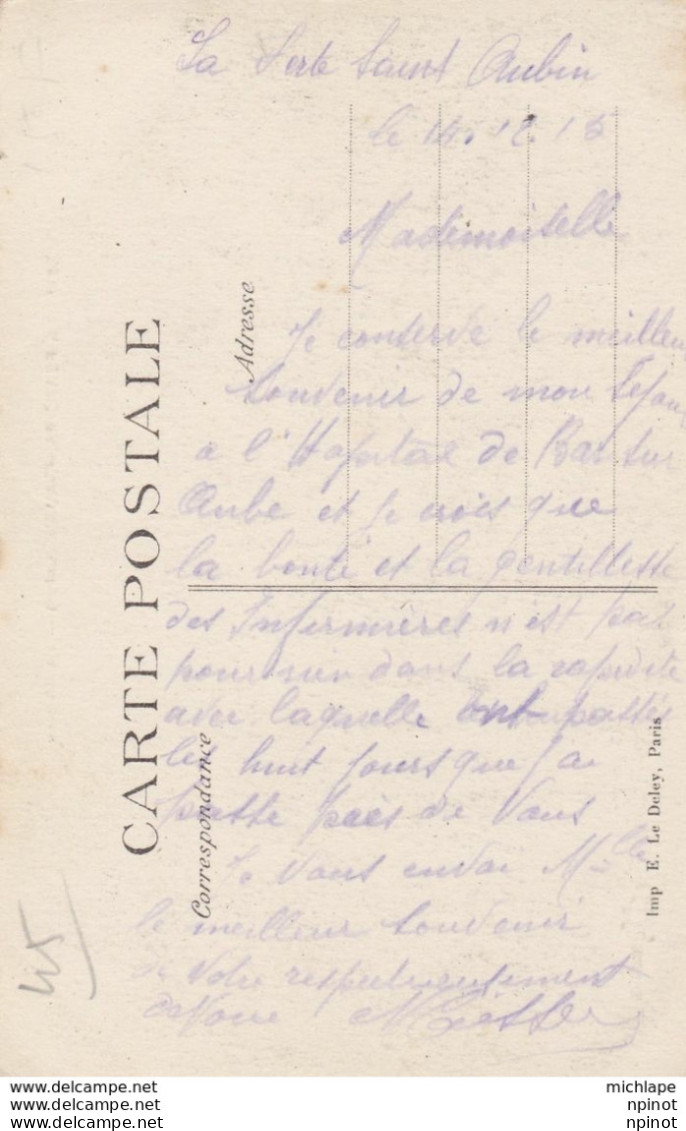 La Ferte Saint Aubin
le 14. 12. 15
Mademoiselle
Je conserve le meilleur
souvenir de mon sejour
a l'Hopital de Bar sur
Aube et je crois que
la bonté et la gentillesse
des Infirmières n'est pas
pour rien dans la rapidite
avec laquelle ont passés
les huit jours que j'ai
passe près de Vous
Je Vous envoi Mlle
le meilleur souvenir
de Votre respectueusement
devoué
CARTE POSTALE
Adresse
Correspondance
Imp E. Le Deley, Paris
45
delcampe.net
delcampe.net
delcampe.net
michlape
npinot
npinot